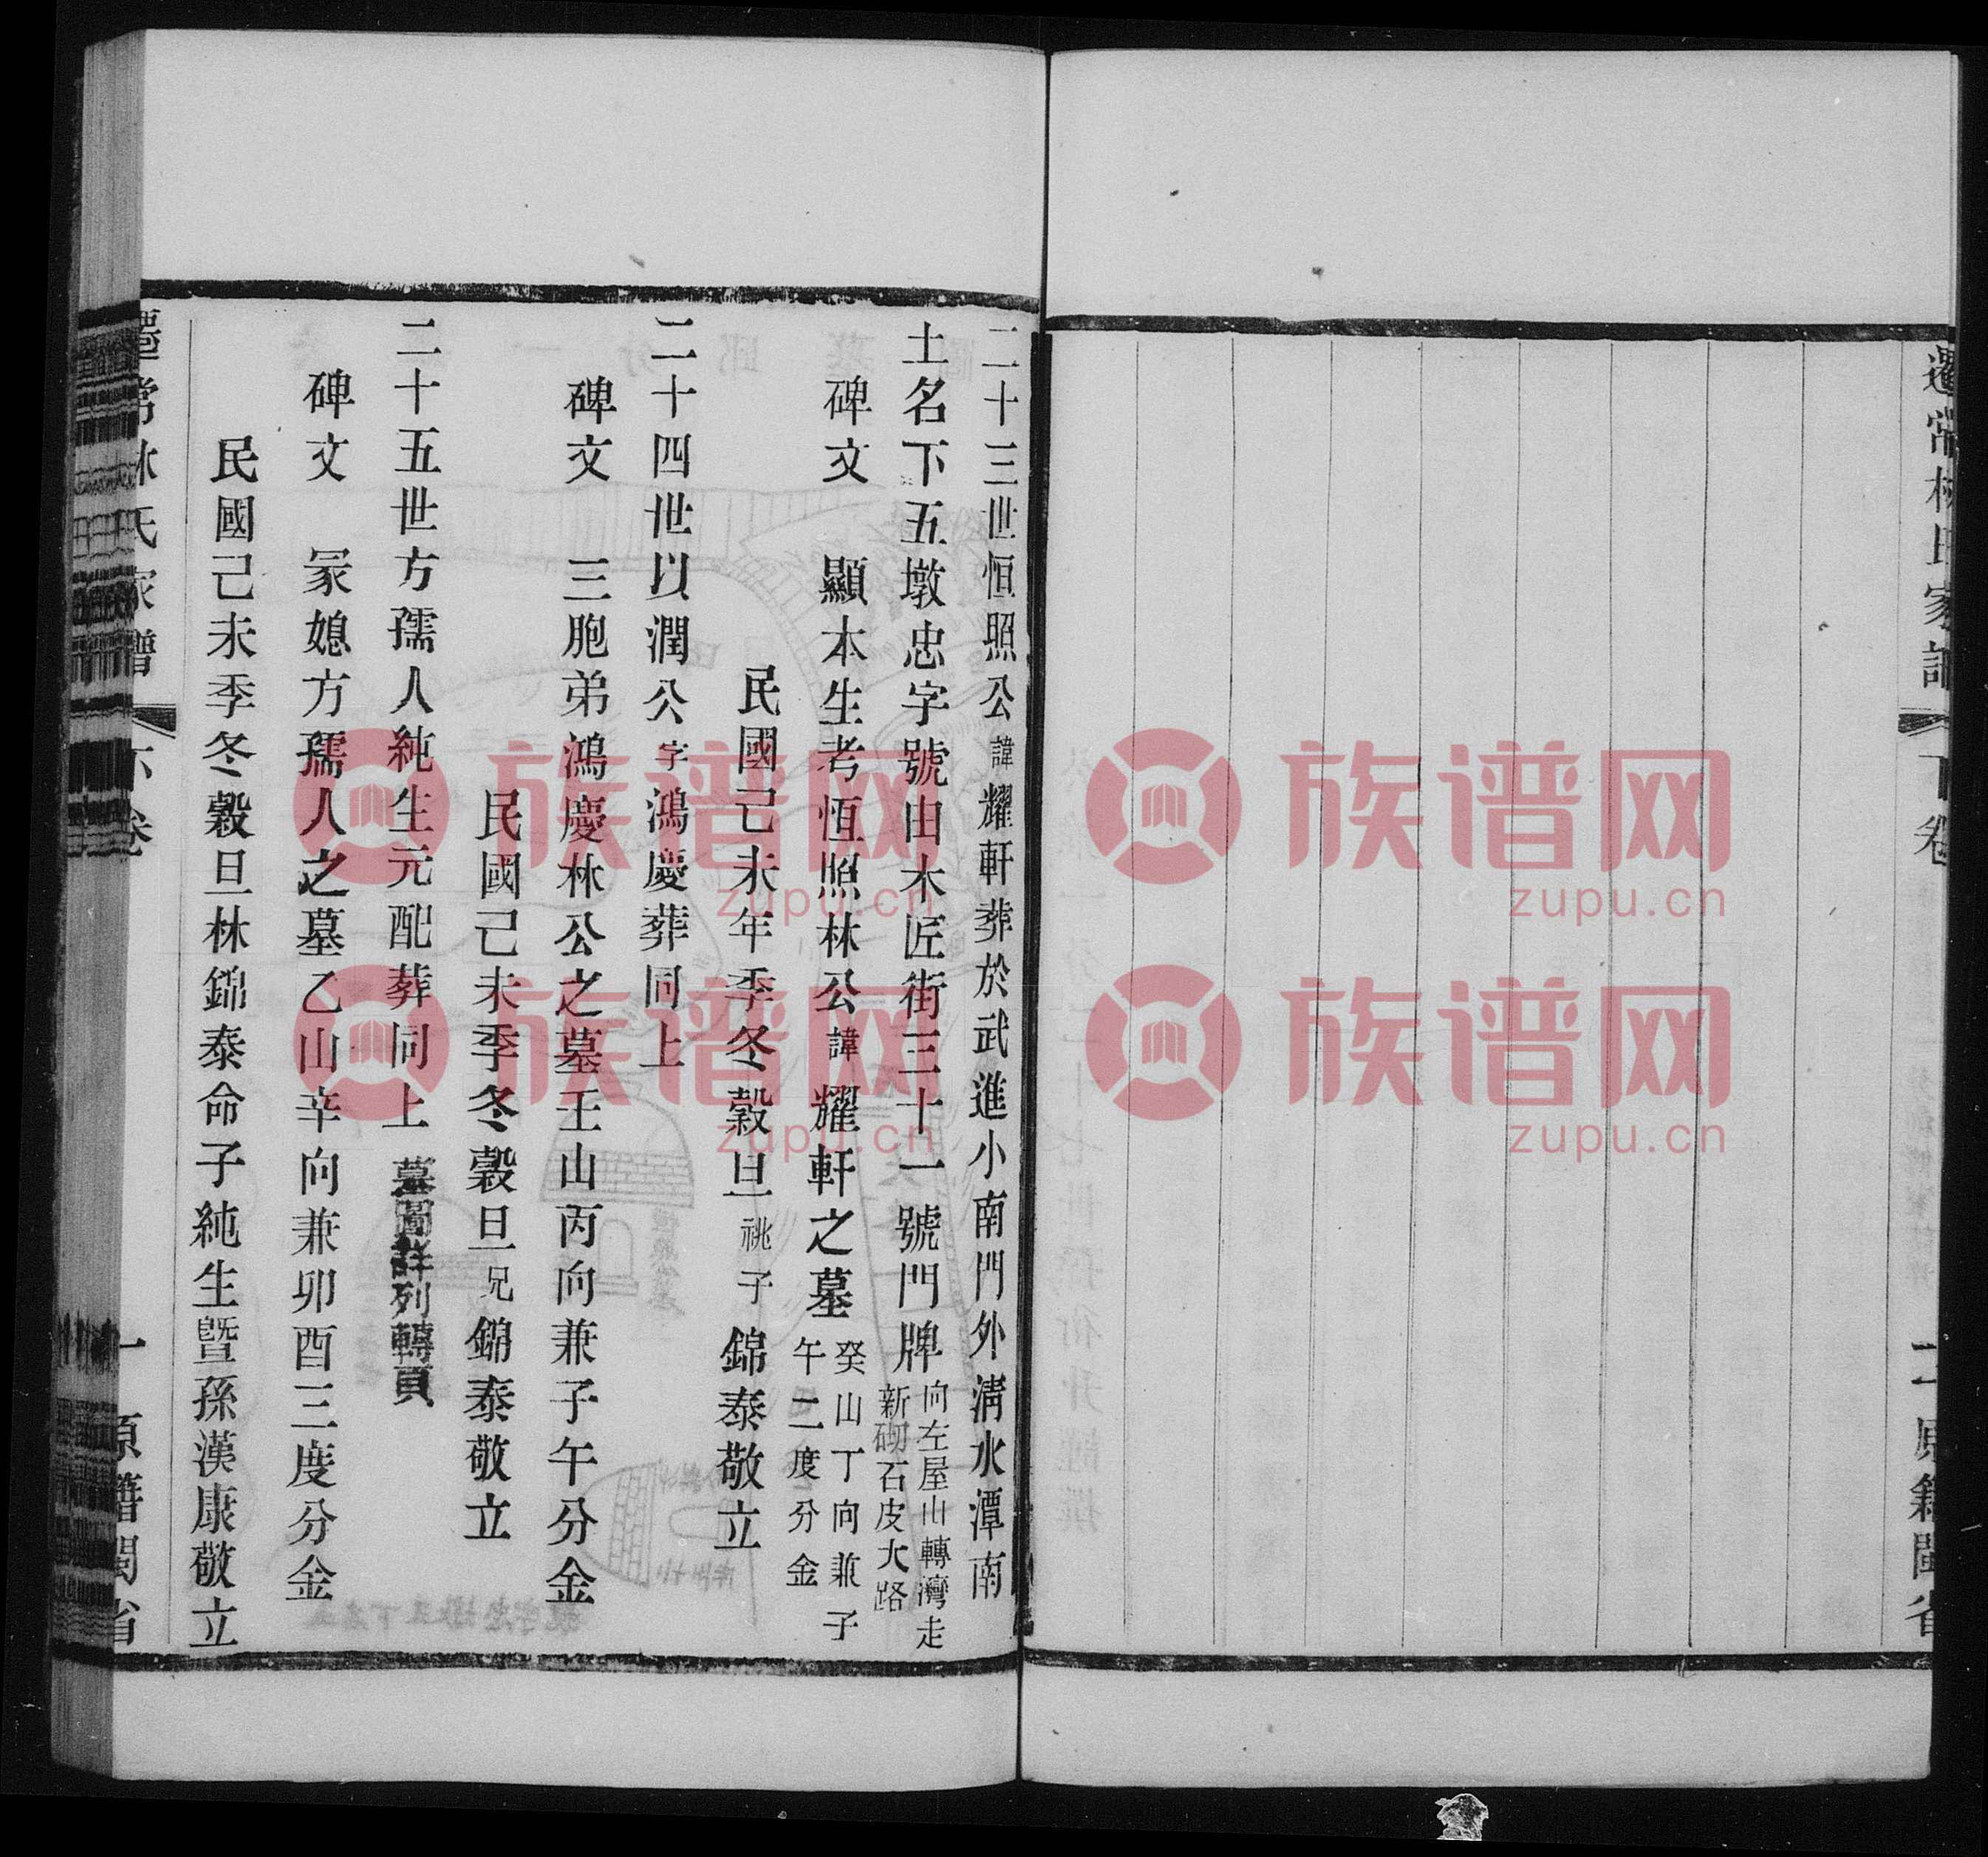 遷常林氏家譜 下卷 二 原籍閩省
二十三世恒照公諱耀軒葬於武進小南門外清水潭南
土名下五墩忠字號由木匠街三十一號門牌向左屋山轉灣走新砌石皮大路
碑文 顯本生考恆照林公諱耀軒之墓癸山丁向兼子午二度分金
民國己未年季冬穀旦祧子錦泰敬立
二十四世以潤公字鴻慶葬同上
碑文 三胞弟鴻慶林公之墓壬山丙向兼子午分金
民國己未季冬穀旦兄錦泰敬立
二十五世方孺人純生元配葬同上 墓圖詳列轉頁
碑文 冢媳方孺人之墓乙山辛向兼卯酉三度分金
民國己未季冬穀旦林錦泰命子純生暨孫漢康敬立
遷常林氏家譜 下卷 一 原籍閩省
族谱网
zupu.cn
族谱网
zupu.cn
族谱网
zupu.cn
族谱网
zupu.cn